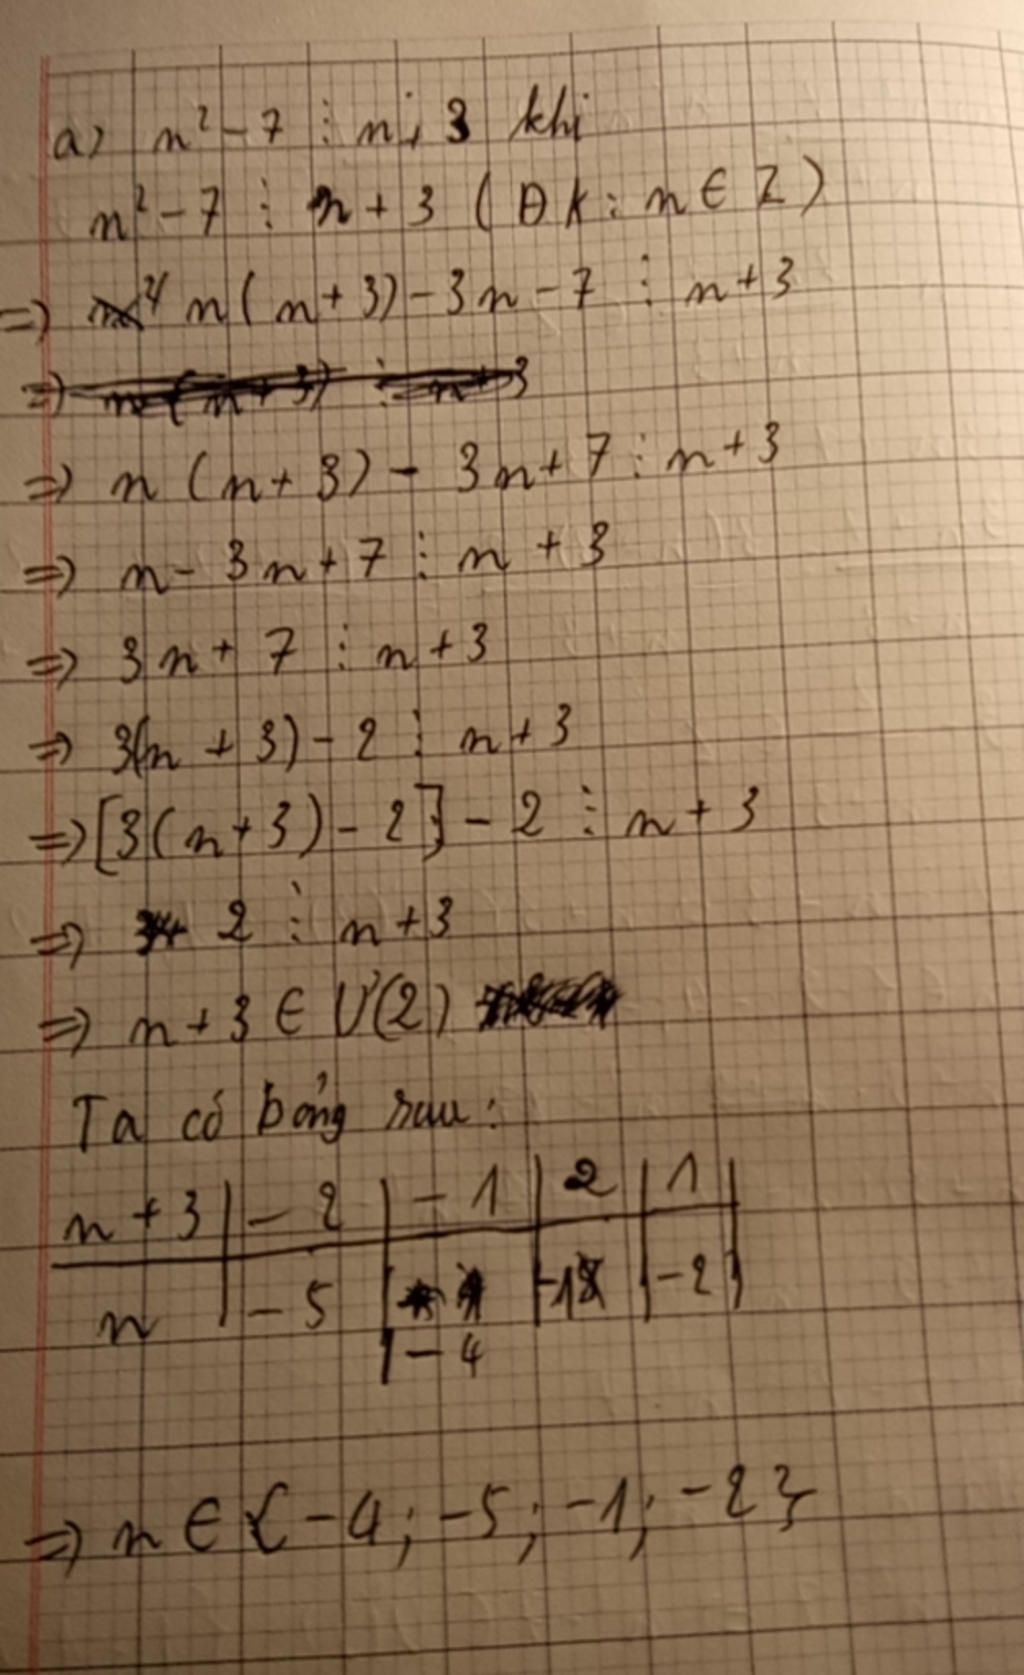 a) n² - 7 ⋮ n + 3 khi
n² - 7 ⋮ n + 3 (ĐK: n ∈ Z)
=> n(n + 3) - 3n - 7 ⋮ n + 3
=> n(n + 3) ⋮ n + 3
=> n(n + 3) - 3n + 7 ⋮ n + 3
=> n - 3n + 7 ⋮ n + 3
=> 3n + 7 ⋮ n + 3
=> 3(n + 3) - 2 ⋮ n + 3
=> [3(n + 3) - 2] - 2 ⋮ n + 3
=> 2 ⋮ n + 3
=> n + 3 ∈ Ư(2)
Ta có bảng sau:
n + 3 | - 2 | - 1 | 2 | 1 |
n | - 5 | - 4 | - 1 | - 2 |
=> n ∈ {-4; -5; -1; -2}